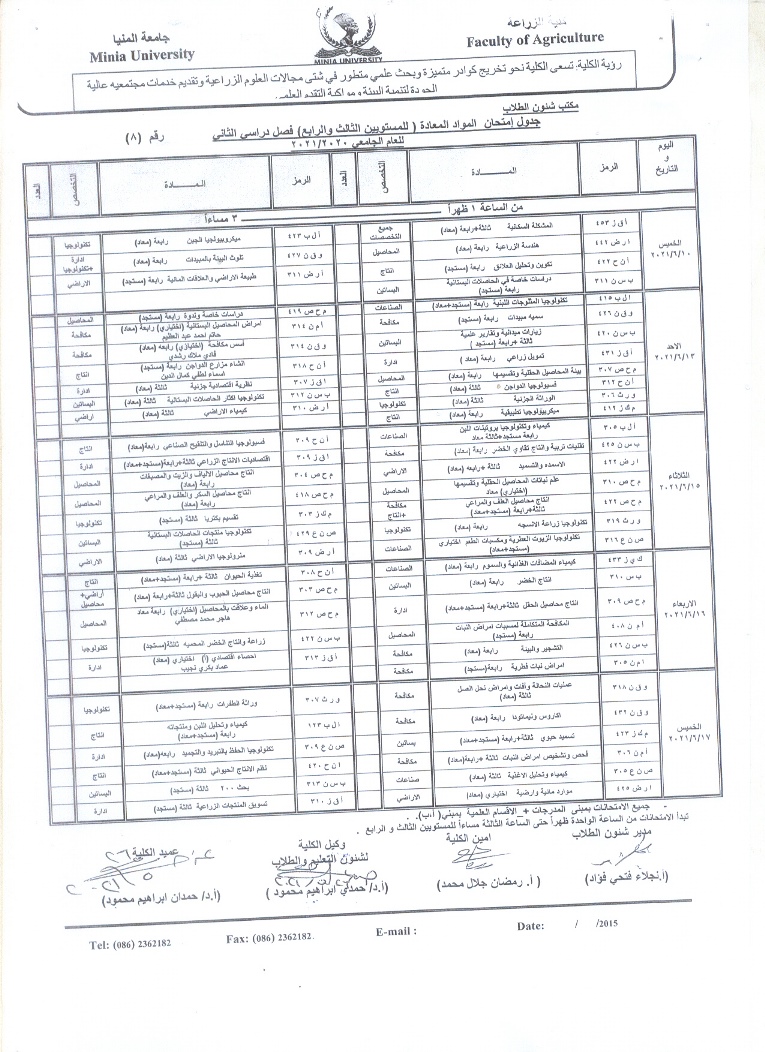 جامعة المنيا
Minia University
MINIA UNIVERSITY
كلية الزراعة
Faculty of Agriculture
رؤية الكلية: تسعى الكلية نحو تخريج كوادر متميزة وبحث علمي متطور في شتى مجالات العلوم الزراعية وتقديم خدمات مجتمعيه عالية
الجودة لتنمية البيئة ومواكبة التقدم العلمي.
مكتب شئون الطلاب
جدول إمتحان المواد المعادة ( للمستويين الثالث والرابع) فصل دراسي الثاني رقم (٨)
للعام الجامعي ٢٠٢١/٢٠٢٠
اليوم و التاريخ الرمز المـــــادة التخصص العدد الرمز المـــــادة التخصص العدد
من الساعة ١ ظهراً ٣ مساءاً
الخميس ٢٠٢١/٦/١٠
أ ق ز ٤٥٣ المشكلة السكانية ثالثة+رابعة (معاد) جميع التخصصات أ ل ب ٤٢٣ ميكروبيولوجيا الجبن رابعة (معاد) تكنولوجيا
أ ر ض ٤٤١ هندسة الزراعية رابعة (معاد) المحاصيل و ق ن ٤٢٧ تلوث البيئة بالمبيدات رابعة (معاد) ادارة +تكنولوجيا
أ ن ح ٤٢٢ تكوين وتحليل العلائق رابعة (مستجد) انتاج أ ر ض ٣١١ طبيعة الاراضي والعلاقات المائية رابعة (مستجد) الاراضي
ب س ن ٣١١ دراسات خاصة في الحاصلات البستانية رابعة (مستجد) البساتين
الاحد ٢٠٢١/٦/١٣
أ ل ب ٤١٥ تكنولوجيا المثلوجات اللبنية رابعة (مستجد+معاد) الصناعات م ح ص ٤١٩ دراسات خاصة وندوة رابعة (مستجد) المحاصيل
و ق ن ٤٢٦ سميه مبيدات رابعة (معاد) مكافحة أ م ن ٣١٤ امراض المحاصيل البستانية (اختياري) رابعة (معاد) حاتم احمد عبد العظيم مكافحة
ب س ن ٤٢٠ زيارات ميدانية وتقارير علمية ثالثة +رابعة (مستجد ) البساتين و ق ن ٣١٤ أسس مكافحة (اختياري) رابعه (معاد) فادي ملاك رشدي مكافحة
أ ق ز ٤٣١ تمويل زراعي رابعة (معاد ) ادارة أ ن ح ٣١٨ انشاء مزارع الدواجن رابعة (مستجد) اسماء لطفي كمال الدين انتاج
م ح ص ٣٠٧ بيئة المحاصيل الحقلية وتقسيمها رابعة (معاد) المحاصيل أ ق ز ٣٠٧ نظرية اقتصادية جزئية ثالثة (معاد) ادارة
أ ن ح ٣١٢ فسيولوجيا الدواجن ثالثة (معاد) انتاج ب س ن ٣١٢ تكنولوجيا اكثار الحاصلات البستانية ثالثة (معاد) البساتين
و ر ث ٣٠٦ الوراثة الجزئية ثالثة (معاد) تكنولوجيا أ ر ض ٣١٠ كيمياء الاراضي ثالثة (معاد) اراضي
م ك ز ٤١٢ ميكروبيولوجيا تطبيقية رابعة (معاد) انتاج
الثلاثاء ٢٠٢١/٦/١٥
أ ل ب ٣٠٥ كيمياء وتكنولوجيا بروتينات اللبن رابعة مستجد+ثالثة معاد الصناعات أ ن ح ٣٠٩ فسيولوجيا التناسل والتلقيح الصناعي رابعة(معاد) انتاج
ب س ن ٤٢٥ تقنيات تربية وانتاج تقاوي الخضر رابعة (معاد) مكافحة أ ق ز ٣٠٩ اقتصاديات الانتاج الزراعي ثالثة+رابعة(مستجد+معاد) ادارة
أ ر ض ٤٢٢ الاسمده والتسميد ثالثة +رابعه (معاد) الاراضي م ح ص ٣٠٤ انتاج محاصيل الالياف والزيت والمصيفات رابعة (معاد) المحاصيل
م ح ص ٣١٠ علم نباتات المحاصيل الحقلية وتقسيمها (اختياري) معاد المحاصيل م ح ص ٤١٨ انتاج محاصيل السكر والعلف والمراعي رابعة (معاد) المحاصيل
م ح ص ٤٢٢ انتاج محاصيل العلف والمراعي ثالثة+رابعة (مستجد+معاد) مكافحة +انتاج م ك ز ٣٠٣ تقسيم بكتريا ثالثة (مستجد) تكنولوجيا
و ر ث ٣١٩ تكنولوجيا زراعة الانسجه رابعة (معاد) تكنولوجيا ص ن ع ٤٢٩ تكنولوجيا منتجات الحاصلات البستانية ثالثة (مستجد) البساتين
ص ن ع ٣١٦ تكنولوجيا الزيوت العطرية ومكسبات الطعم اختياري (مستجد+معاد) الصناعات أ ر ض ٣٠٩ منرولوجيا الاراضي ثالثة (معاد) الاراضي
الاربعاء ٢٠٢١/٦/١٦
ك ي ز ٤٣٣ كيمياء المضافات الغذائية والسموم رابعة (معاد) الصناعات أ ن ح ٣٠٨ تغذية الحيوان ثالثة +رابعة(مستجد+معاد) انتاج
ب س ن ٣١٠ انتاج الخضر رابعة (معاد) البساتين م ح ص ٣٠٣ انتاج محاصيل الحبوب والبقول ثالثة+رابعة(معاد) اراضي+ محاصيل
م ح ص ٣٠٩ انتاج محاصيل الحقل ثالثة+رابعة (مستجد+معاد) ادارة م ح ص ٣١٢ الماء وعلاقت بالمحاصيل (اختياري) رابعة معاد هاجر محمد مصطفي المحاصيل
أ م ن ٤٠٨ المكافحة المتكاملة لمسببات امراض النبات رابعة (مستجد) المحاصيل ب س ن ٤٢٢ زراعة وانتاج الخضر المحميه ثالثة(مستجد) تكنولوجيا
ب س ن ٤٢٦ التشجير والبيئة رابعة (معاد) مكافحة أ ق ز ٣١٣ احصاء اقتصادي (أ) اختياري (معاد) عماد بكري نجيب ادارة
أ م ن ٣٠٥ امراض نبات فطرية رابعة(مستجد) مكافحة
الخميس ٢٠٢١/٦/١٧
و ق ن ٣١٨ عمليات النحالة وآفات وامراض نحل العسل ثالثة (معاد) مكافحة و ر ث ٣٠٧ وراثة الطفرات رابعة (مستجد+معاد) تكنولوجيا
و ق ن ٤٣٢ اكاروس ونيماتودا رابعة (معاد) مكافحة أ ل ب ١٢٣ كيمياء وتحليل اللبن ومنتجاته رابعة (مستجد+معاد) انتاج
م ك ز ٤٢٣ تسميد حيوي ثالثة+رابعة(مستجد+معاد) بساتين ص ن ع ٣٠٩ تكنولوجيا الحفظ بالتبريد والتجميد رابعه(معاد) ادارة
أ م ن ٣٠٦ فحص وتشخيص امراض النبات ثالثة +رابعة(معاد) مكافحة أ ن ح ٤٢٠ نظم الانتاج الحيواني ثالثة (مستجد+معاد) انتاج
ص ن ع ٣٠٥ كيمياء وتحليل الاغذية ثالثة (معاد) صناعات ب س ن ٣١٣ بحث ٢٠٠ ثالثة (مستجد) البساتين
أ ر ض ٤٢٥ موارد مائية وارضية اختياري (معاد) الاراضي أ ق ز ٣١٠ تسويق المنتجات الزراعية ثالثة (مستجد) ادارة
- جميع الامتحانات بمبنى المدرجات + الاقسام العلمية بمبني( أ،ب).
تبدأ الامتحانات من الساعة الواحدة ظهراً حتى الساعة الثالثة مساءاً للمستويين الثالث و الرابع .
مدير شئون الطلاب
(أ.نجلاء فتحي فؤاد)
امين الكلية
( أ. رمضان جلال محمد)
وكيل الكلية
لشئون التعليم والطلاب
(أ.د/ حمدي ابراهيم محمود )
عميد الكلية
(أ.د/ حمدان ابراهيم محمود)
Tel: (086) 2362182 Fax: (086) 2362182. E-mail : Date: / /2015